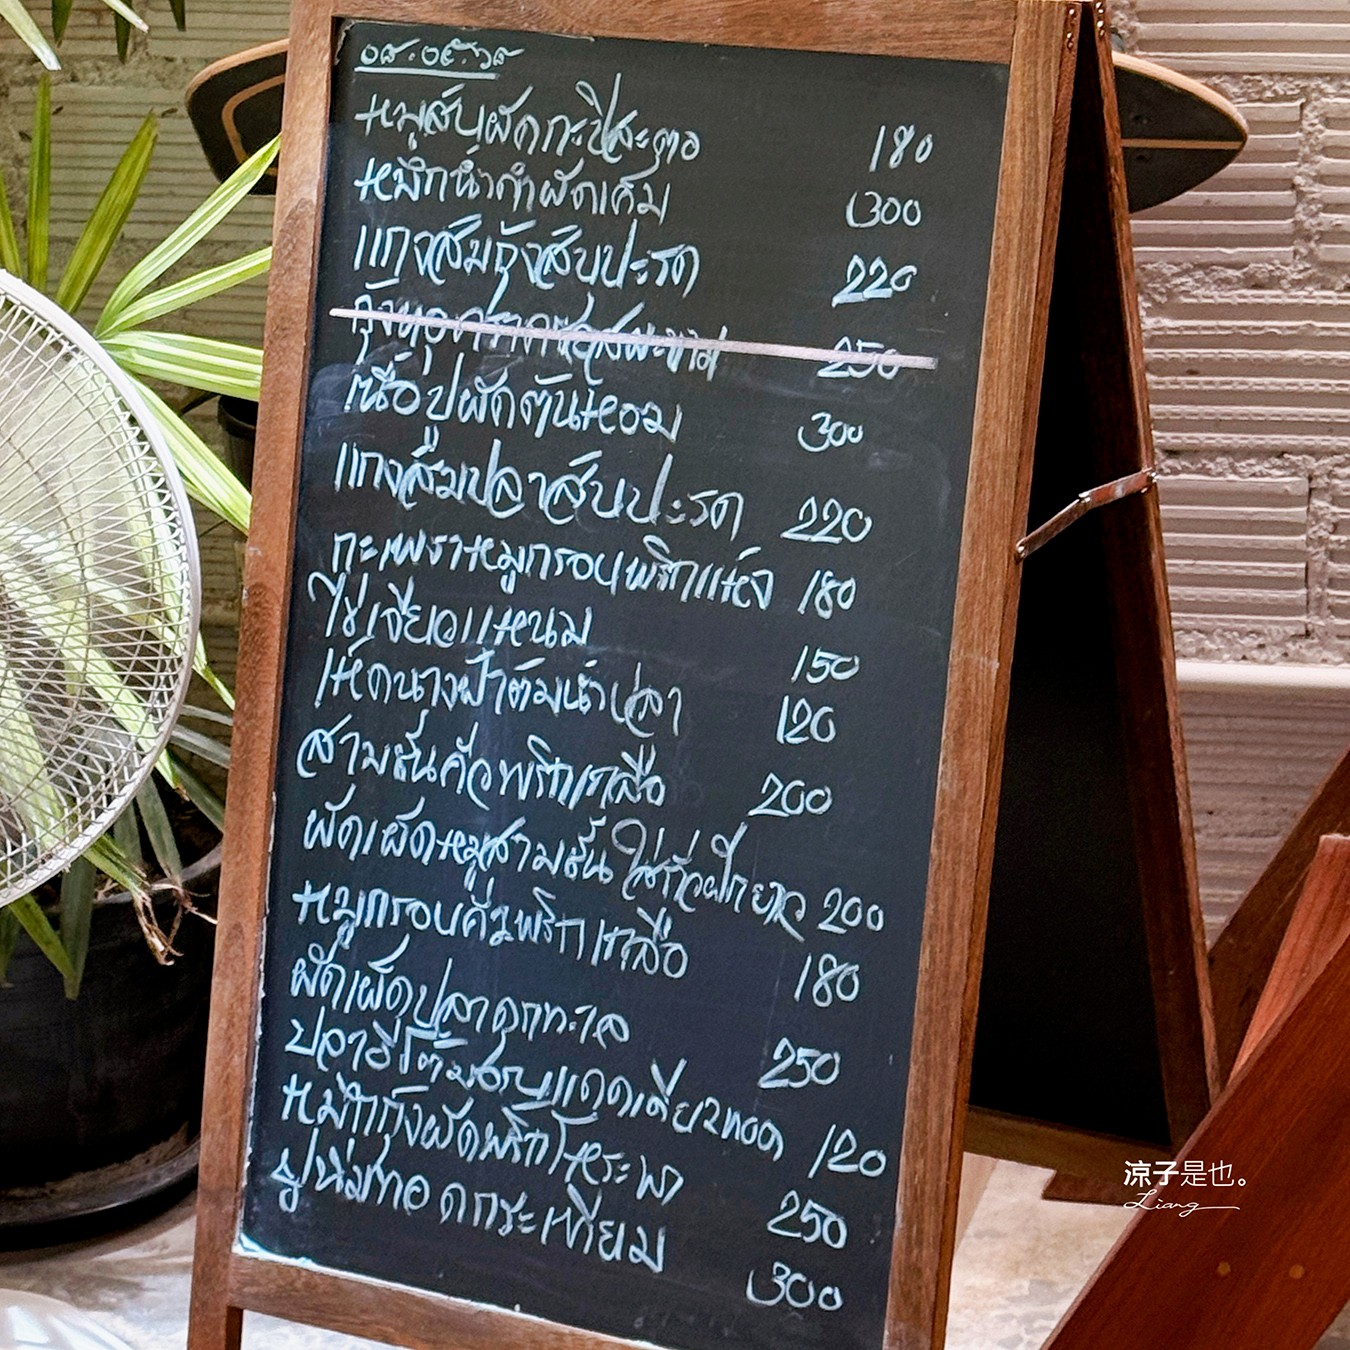 ๐๘.๐๕.๖๘
หมูสับผัดกะปิสะตอ 180
หมึกน้ำดำผัดเค็ม 300
แกงส้มกุ้งสับปะรด 220
กุ้งทอดราดซอสมะขาม 250
เนื้อปูผัดต้นหอม 300
แกงส้มปลาสับปะรด 220
กะเพราหมูกรอบพริกแห้ง 180
ไข่เจียวแหนม 150
เห็ดนางฟ้าต้มน้ำปลา 120
สามชั้นคั่วพริกเกลือ 200
ผัดเผ็ดหมูสามชั้นใส่ถั่วฝักยาว 200
หมูกรอบคั่วพริกเกลือ 180
ผัดเผ็ดปลาดุกทะเล 250
ปลาอีโต้มอญแดดเดียวทอด 120
หมึกกุ้งผัดพริกโหระพา 250
ปูนิ่มทอดกระเทียม 300
涼子是也。
Liang